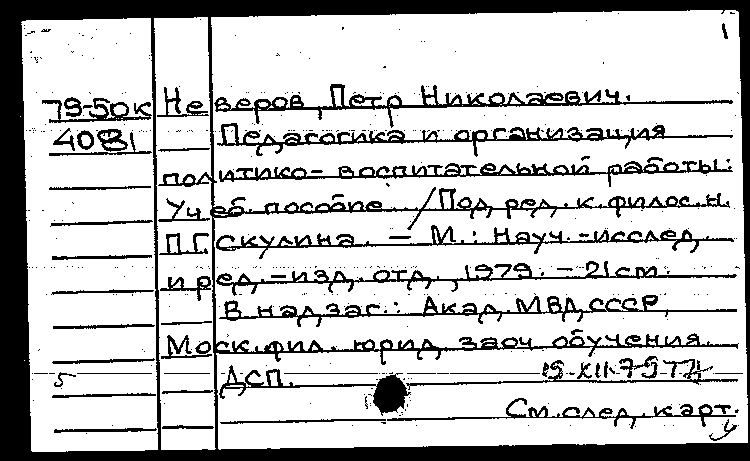 1
79-50к Неверов, Петр Николаевич.
4081 Педагогика и организация
политико-воспитательной работы:
Учеб. пособие. / Под ред. к. филос. н.
П.Г. Скулина. — М.: Науч.-исслед.
и ред.-изд. отд., 1979. — 21 см.
В надзаг.: Акад. МВД СССР,
Моск. фил. юрид. заоч. обучения.
5 ДСП.
См. след. карт.